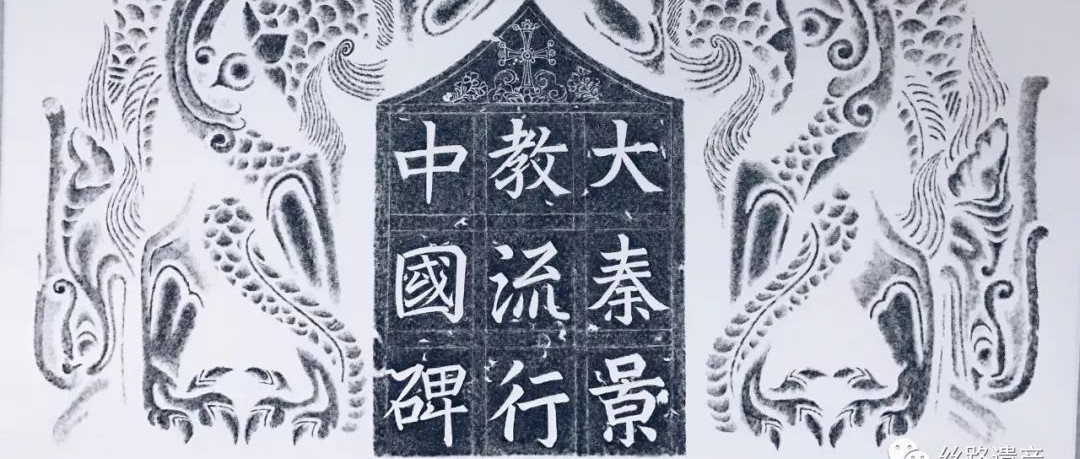 大秦景
教流行
中國碑
丝路遗产